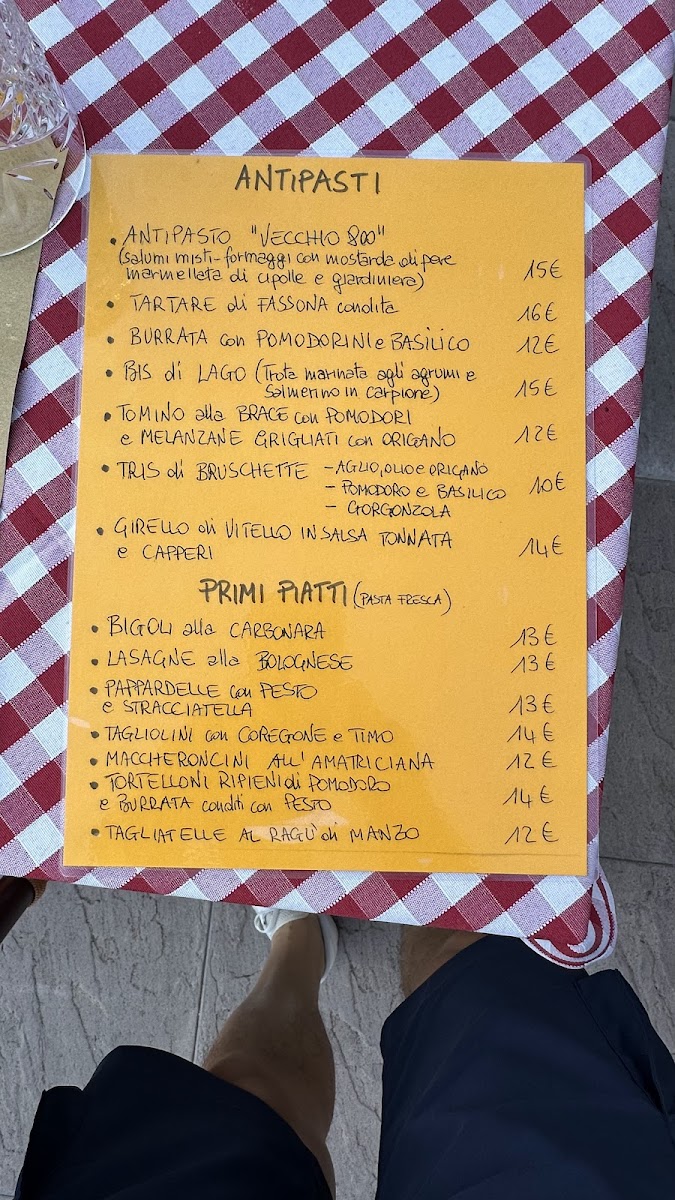 ANTIPASTI
• ANTIPASTO "VECCHIO 800"
(salumi misti-formaggi con mostarda di pere
marmellata di cipolle e giardiniera) 15€
• TARTARE di FASSONA condita 16€
• BURRATA con POMODORINI e BASILICO 12€
• BIS di LAGO (Trota marinata agli agrumi e
Salmerino in carpione) 15€
• TOMINO alla BRACE con POMODORI
e MELANZANE GRIGLIATI con ORIGANO 12€
• TRIS di BRUSCHETTE - AGLIO, OLIO e ORIGANO
- POMODORO e BASILICO 10€
- GORGONZOLA
• GIRELLO di VITELLO IN SALSA TONNATA
e CAPPERI 14€
PRIMI PIATTI (PASTA FRESCA)
• BIGOLI alla CARBONARA 13€
• LASAGNE alla BOLOGNESE 13€
• PAPPARDELLE con PESTO
e STRACCIATELLA 13€
• TAGLIOLINI con COREGONE e TIMO 14€
• MACCHERONCINI ALL'AMATRICIANA 12€
• TORTELLONI RIPIENI di POMODORO
e BURRATA conditi con PESTO 14€
• TAGLIATELLE AL RAGU' di MANZO 12€